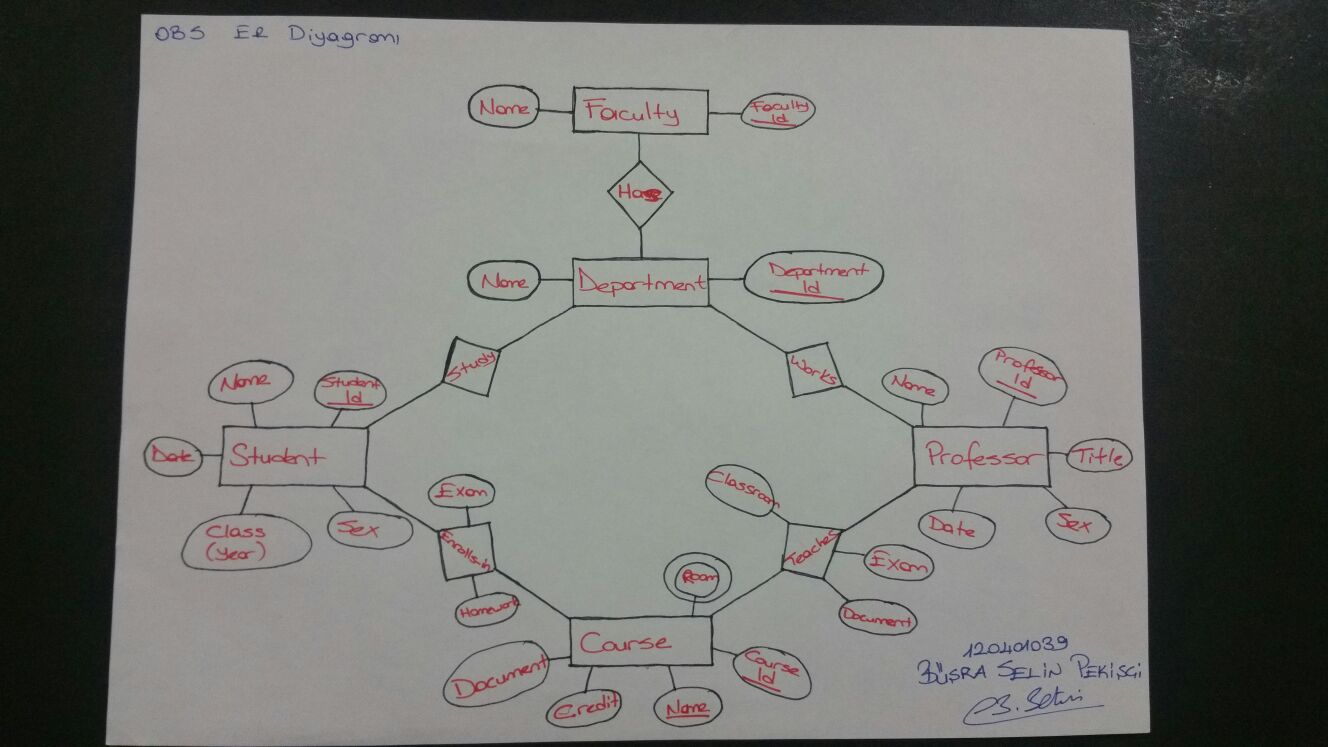 OBS ER Diyagramı
Name
Faculty
Faculty
Id
Has
Name
Department
Department
Id
Study
Works
Name
Student
Id
Date
Student
Class
(year)
Sex
Name
Professor
Id
Professor
Title
Date
Sex
Exam
Enrolls-in
Homework
Classroom
Teaches
Exam
Document
Room
Course
Document
Credit
Name
Course
Id
120401039
BÜŞRA SELİN PEKİŞCİ